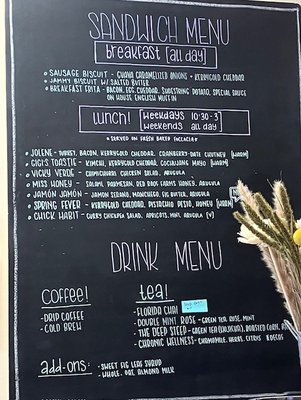 SANDWICH MENU
breakfast [all day]
SAUSAGE BISCUIT - GUAVA CARAMELIZED ONIONS + KERRYGOLD CHEDDAR
JAMMY BISCUIT W/ SALTED BUTTER
BREAKFAST FRITA - BACON, EGG, CHEDDAR, SHOESTRING POTATO, SPECIAL SAUCE
ON HOUSE ENGLISH MUFFIN
lunch! weekdays 10:30-3
weekends all day
*SERVED ON FRESH BAKED FOCCACIA*
JOLENE - TURKEY, BACON, KERRYGOLD CHEDDAR, CRANBERRY-DATE CHUTNEY [WARM]
GIGI'S TOASTIE - KIMCHI, KERRYGOLD CHEDDAR, GOCHUJANG MAYO [WARM]
VICKY VERDE - CHIMICHURRI CHICKEN SALAD, ARUGULA
MISS HONEY - SALAMI, PARMESAN, HONEY, ARUGULA
JAMÓN JAMÓN - JAMON SERRANO, MANCHEGO, FIG BUTTER, ARUGULA
SPRING FEVER - KERRYGOLD CHEDDAR, PISTACHIO PESTO, HONEY [WARM]
CHICK HABIT - CURRY CHICKPEA SALAD, APRICOTS, MINT, ARUGULA [V]
DRINK MENU
coffee!
DRIP COFFEE
COLD BREW
tea!
FLORIDA CHAI
DOUBLE MINT ROSE - GREEN TEA, ROSE, MINT
THE DEEP STEEP - GREEN TEA ROASTED CORN,
CHRONIC WELLNESS - CHAMOMILE, HERBS, CITRUS
add-ons:
SWEET FIG LEAF SHRUB
WHOLE, OAT, ALMOND MILK